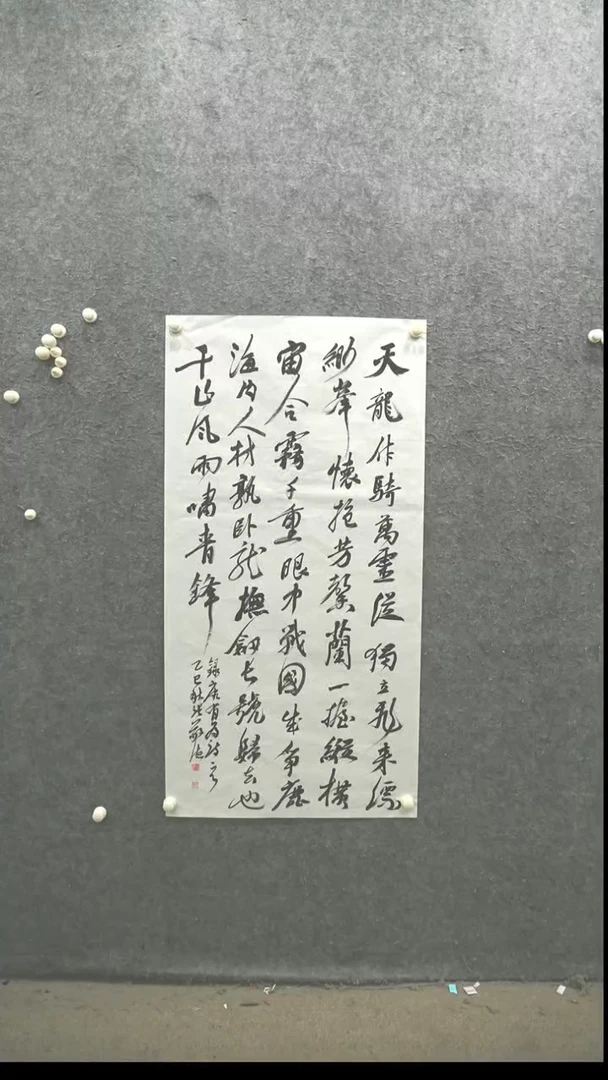 天龍作騎萬靈從獨立飛来縹
緲峯懷抱芳馨蘭一握縱橫
宙合霧千重眼中戰國成爭鹿
海内人材孰卧龍撫劍長號歸去也
千山風雨嘯青鋒
錄康有為詩一首
乙巳秋